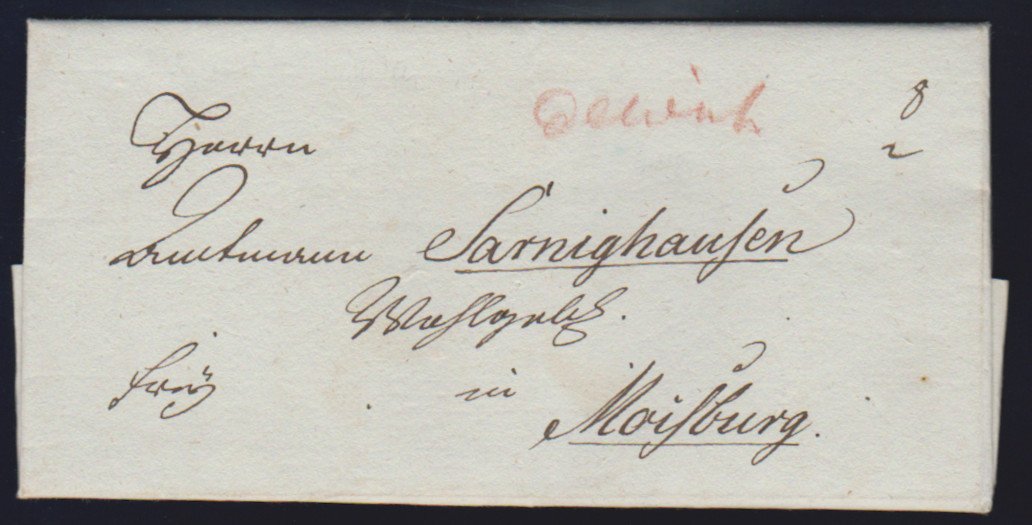 8
Herrn
Amtmann Sarnighausen
Wohlgeb.
frey in
Moisburg.